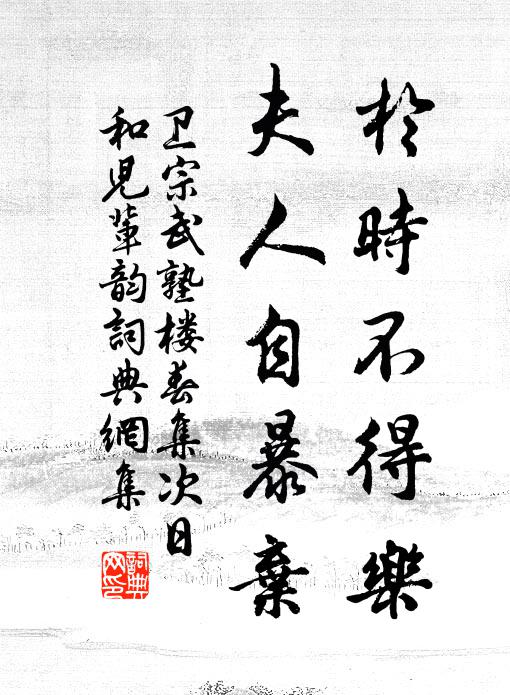 於時不得樂
夫人自暴棄
卫宗武塾楼春集次日
和児輩韵詞典網集
詞典網印